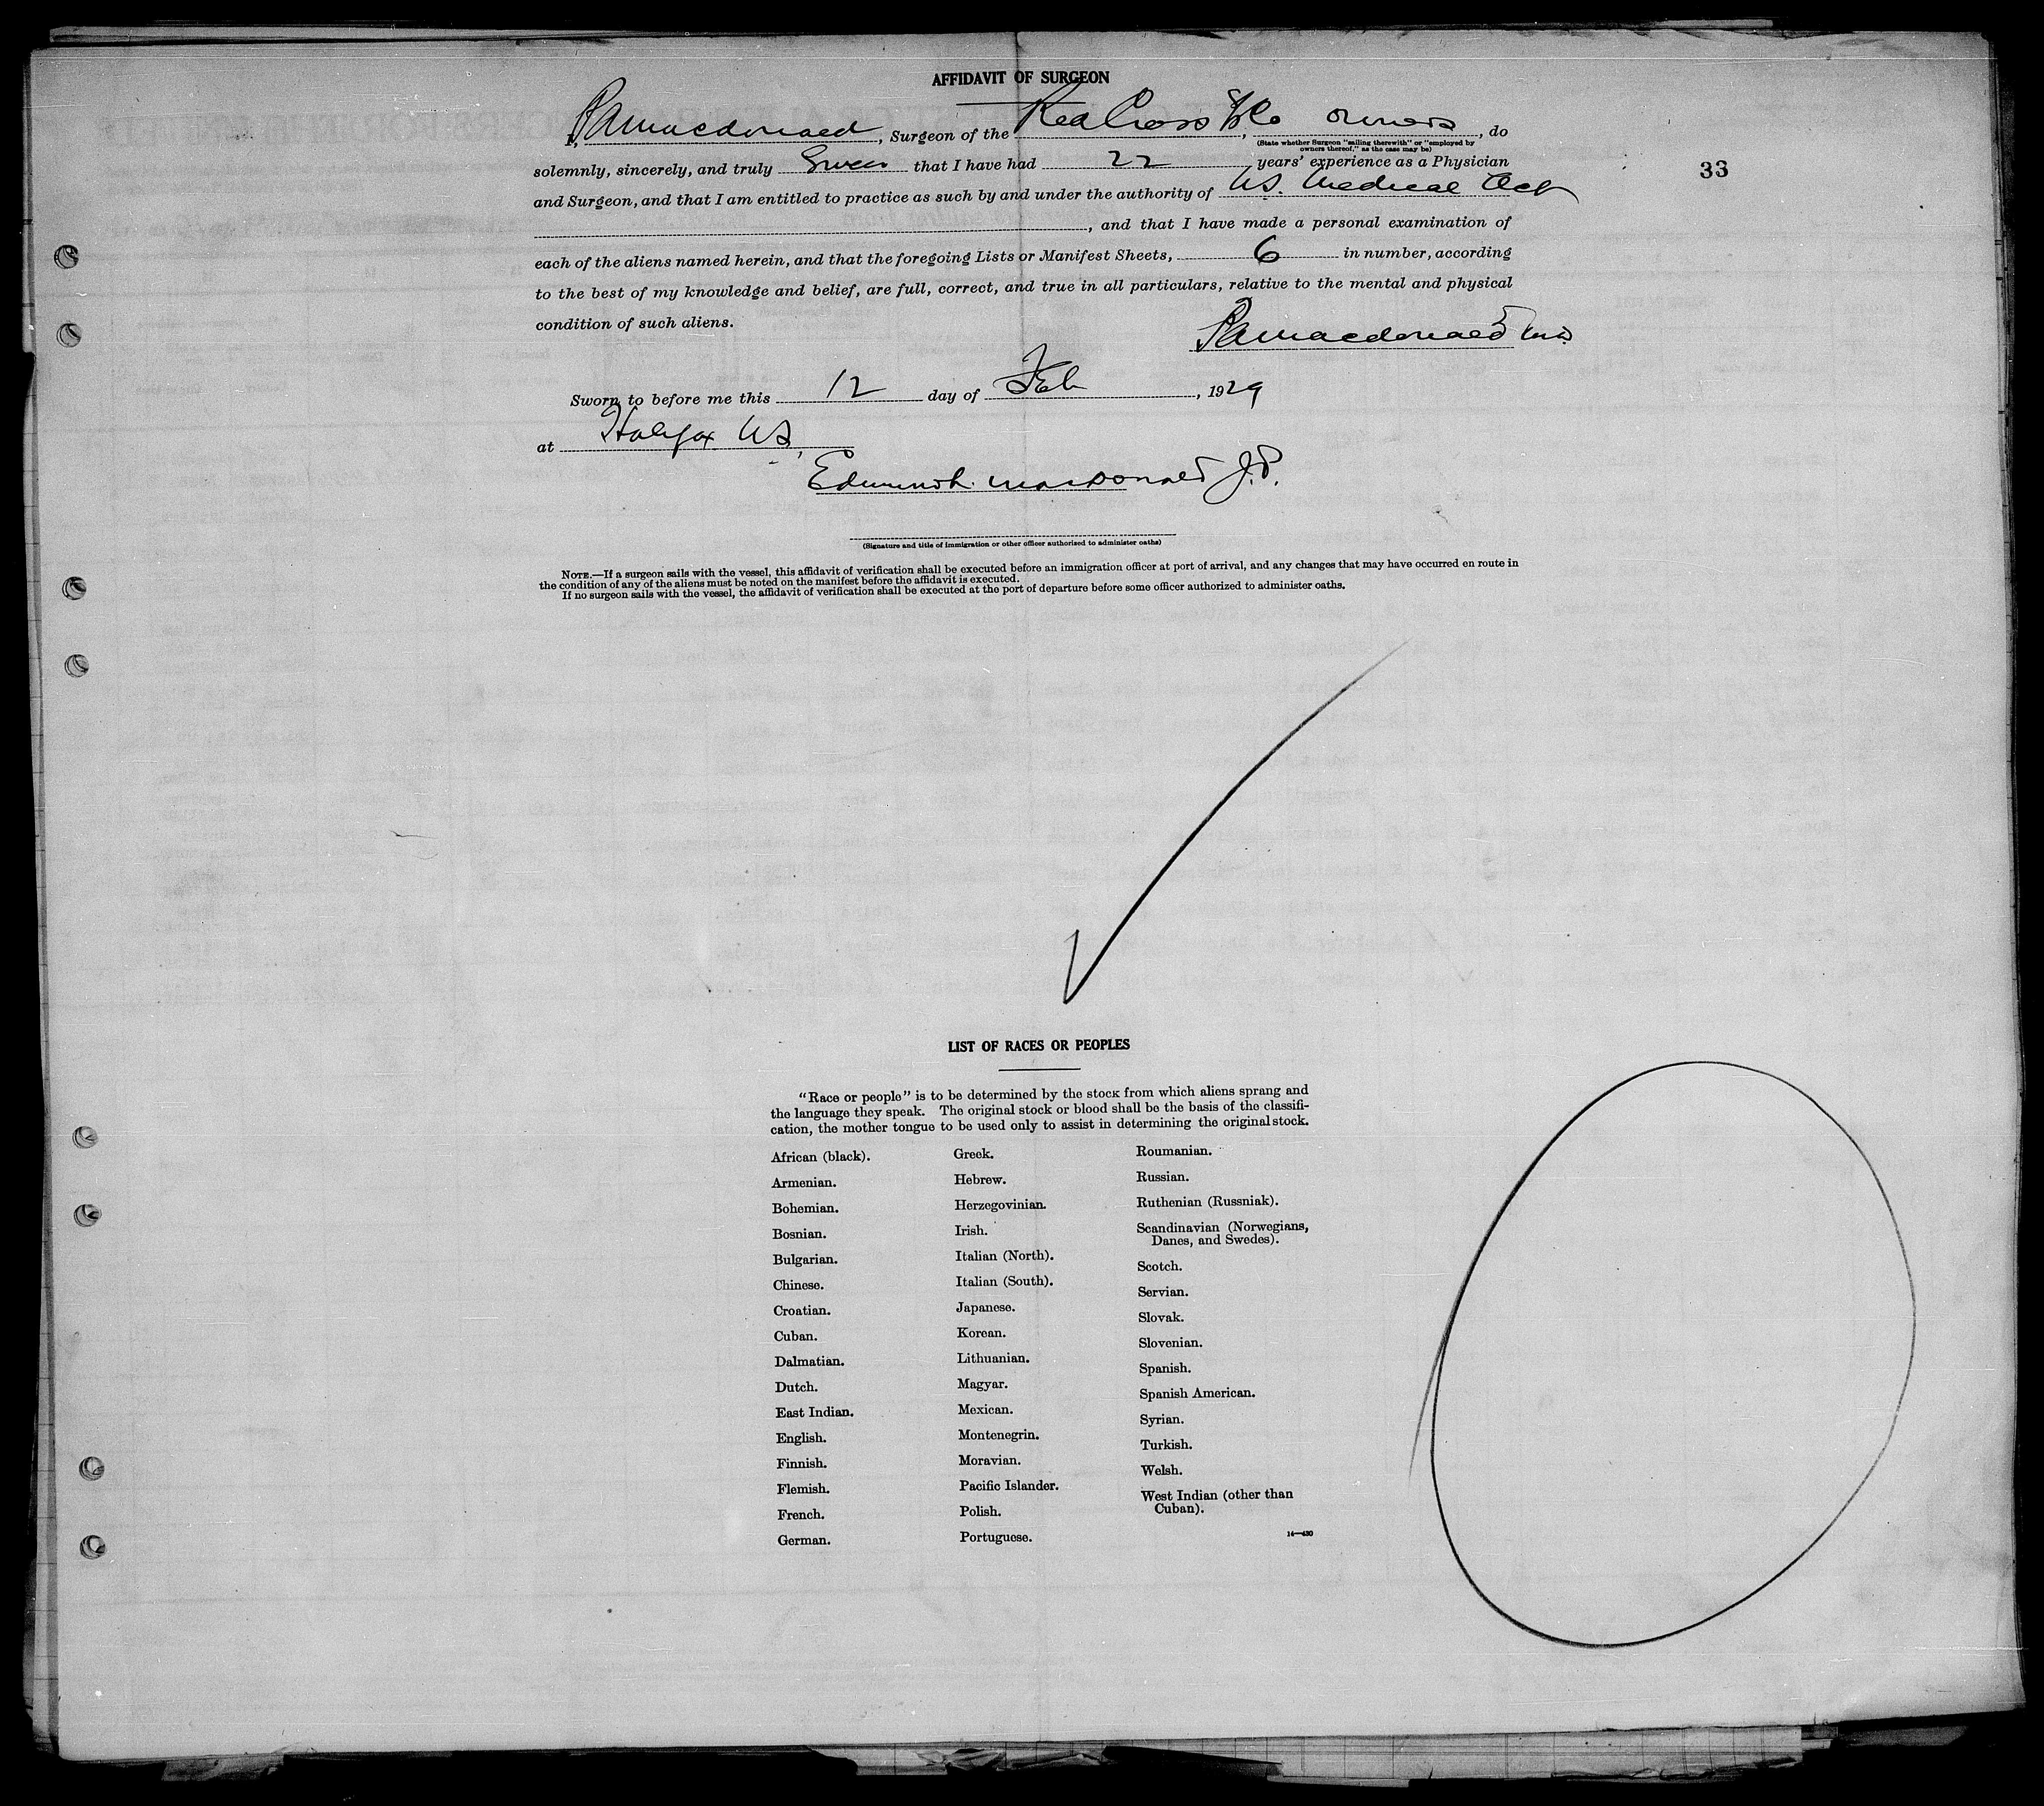 AFFIDAVIT OF SURGEON
I, PAMacdonald, Surgeon of the Red Cross S/S Co, owners, do
(State whether Surgeon "sailing therewith" or "employed by
owners thereof," as the case may be)
solemnly, sincerely, and truly Swear that I have had 22 years' experience as a Physician
33
and Surgeon, and that I am entitled to practice as such by and under the authority of NS. Medical Act
, and that I have made a personal examination of
each of the aliens named herein, and that the foregoing Lists or Manifest Sheets, 6 in number, according
to the best of my knowledge and belief, are full, correct, and true in all particulars, relative to the mental and physical
condition of such aliens.
PAMacdonald MD.
Sworn to before me this 12 day of Feb, 1929
at Halifax NS,
Edmund. MacDonald J.P.
(Signature and title of immigration or other officer authorized to administer oaths)
NOTE.—If a surgeon sails with the vessel, this affidavit of verification shall be executed before an immigration officer at port of arrival, and any changes that may have occurred en route in
the condition of any of the aliens must be noted on the manifest before the affidavit is executed.
If no surgeon sails with the vessel, the affidavit of verification shall be executed at the port of departure before some officer authorized to administer oaths.
LIST OF RACES OR PEOPLES
"Race or people" is to be determined by the stock from which aliens sprang and
the language they speak. The original stock or blood shall be the basis of the classifi-
cation, the mother tongue to be used only to assist in determining the original stock.
African (black).
Armenian.
Bohemian.
Bosnian.
Bulgarian.
Chinese.
Croatian.
Cuban.
Dalmatian.
Dutch.
East Indian.
English.
Finnish.
Flemish.
French.
German.
Greek.
Hebrew.
Herzegovinian.
Irish.
Italian (North).
Italian (South).
Japanese.
Korean.
Lithuanian.
Magyar.
Mexican.
Montenegrin.
Moravian.
Pacific Islander.
Polish.
Portuguese.
Roumanian.
Russian.
Ruthenian (Russniak).
Scandinavian (Norwegians,
Danes, and Swedes).
Scotch.
Servian.
Slovak.
Slovenian.
Spanish.
Spanish American.
Syrian.
Turkish.
Welsh.
West Indian (other than
Cuban).
14—430